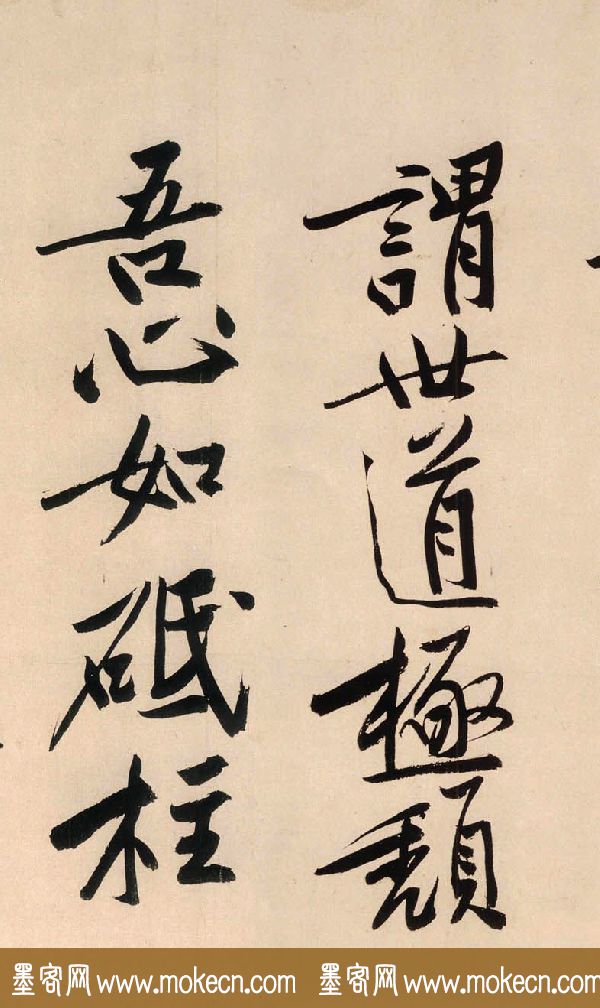 謂世道極頹
吾心如砥柱
墨客网 www.mokecn.com 墨客网 www.mokecn.com